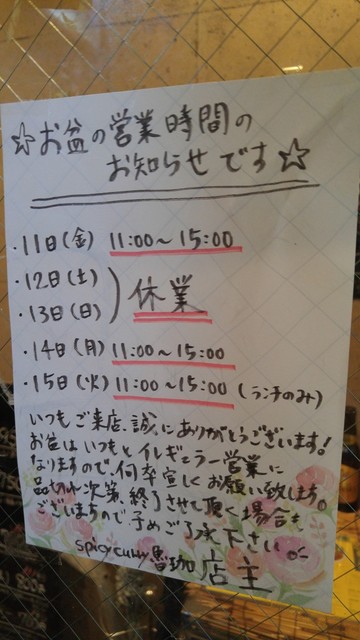 ☆お盆の営業時間の
お知らせです☆
・11日(金) 11:00~15:00
・12日(土)
・13日(日)
休業
・14日(月) 11:00~15:00
・15日(火) 11:00~15:00 (ランチのみ)
いつもご来店、誠にありがとうございます!
お盆はいつもとイレギュラー営業に
なりますので、何卒宜しくお願い致します。
品切れ次第、終了させて頂く場合も
ございますので予めご了承下さい。
spicycurry 魯珈 店主